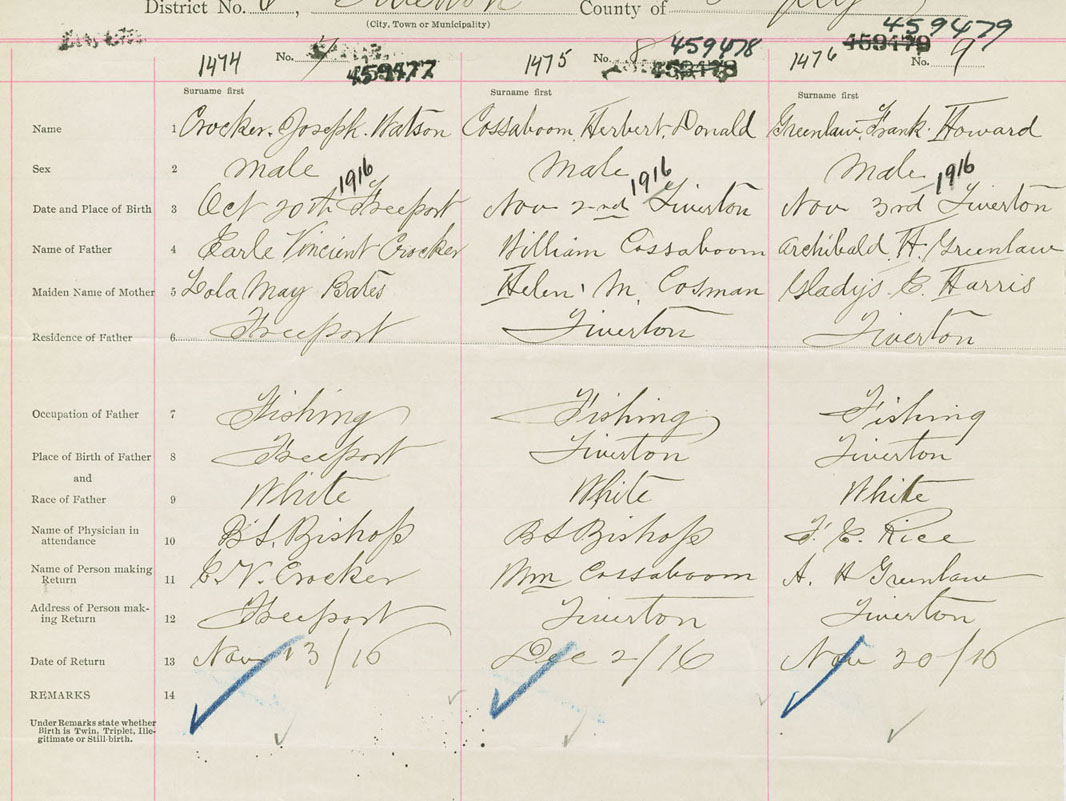 District No. , County of
(City, Town or Municipality)
1474 No. 7 459477 1475 No. 8 459478 1476 No. 9 459479
Surname first Surname first Surname first
Name 1 Crocker. Joseph. Watson Cossaboom Herbert. Donald Greenlaw Frank. Howard
Sex 2 male Male Male
1916 1916 1916
Date and Place of Birth 3 Oct 20th Freeport Nov 2nd Tiverton Nov 3rd Tiverton
Name of Father 4 Earle Vincient Crocker William Cossaboom Archibald. H. Greenlaw
Maiden Name of Mother 5 Lola May Bates Helen M. Cosman Gladys E. Harris
Residence of Father 6 Freeport Tiverton Tiverton
Occupation of Father 7 Fishing Fishing Fishing
Place of Birth of Father 8 Freeport Tiverton Tiverton
and
Race of Father 9 White White White
Name of Physician in
attendance 10 B.S. Bishop BS Bishop F. E. Rice
Name of Person making
Return 11 E. V. Crocker Wm Cossaboom A. H Greenlaw
Address of Person mak-
ing Return 12 Freeport Tiverton Tiverton
Date of Return 13 Nov 13/16 Dec 2/16 Nov 20/16
REMARKS 14
Under Remarks state whether
Birth is Twin, Triplet, Ille-
gitimate or Still-birth.